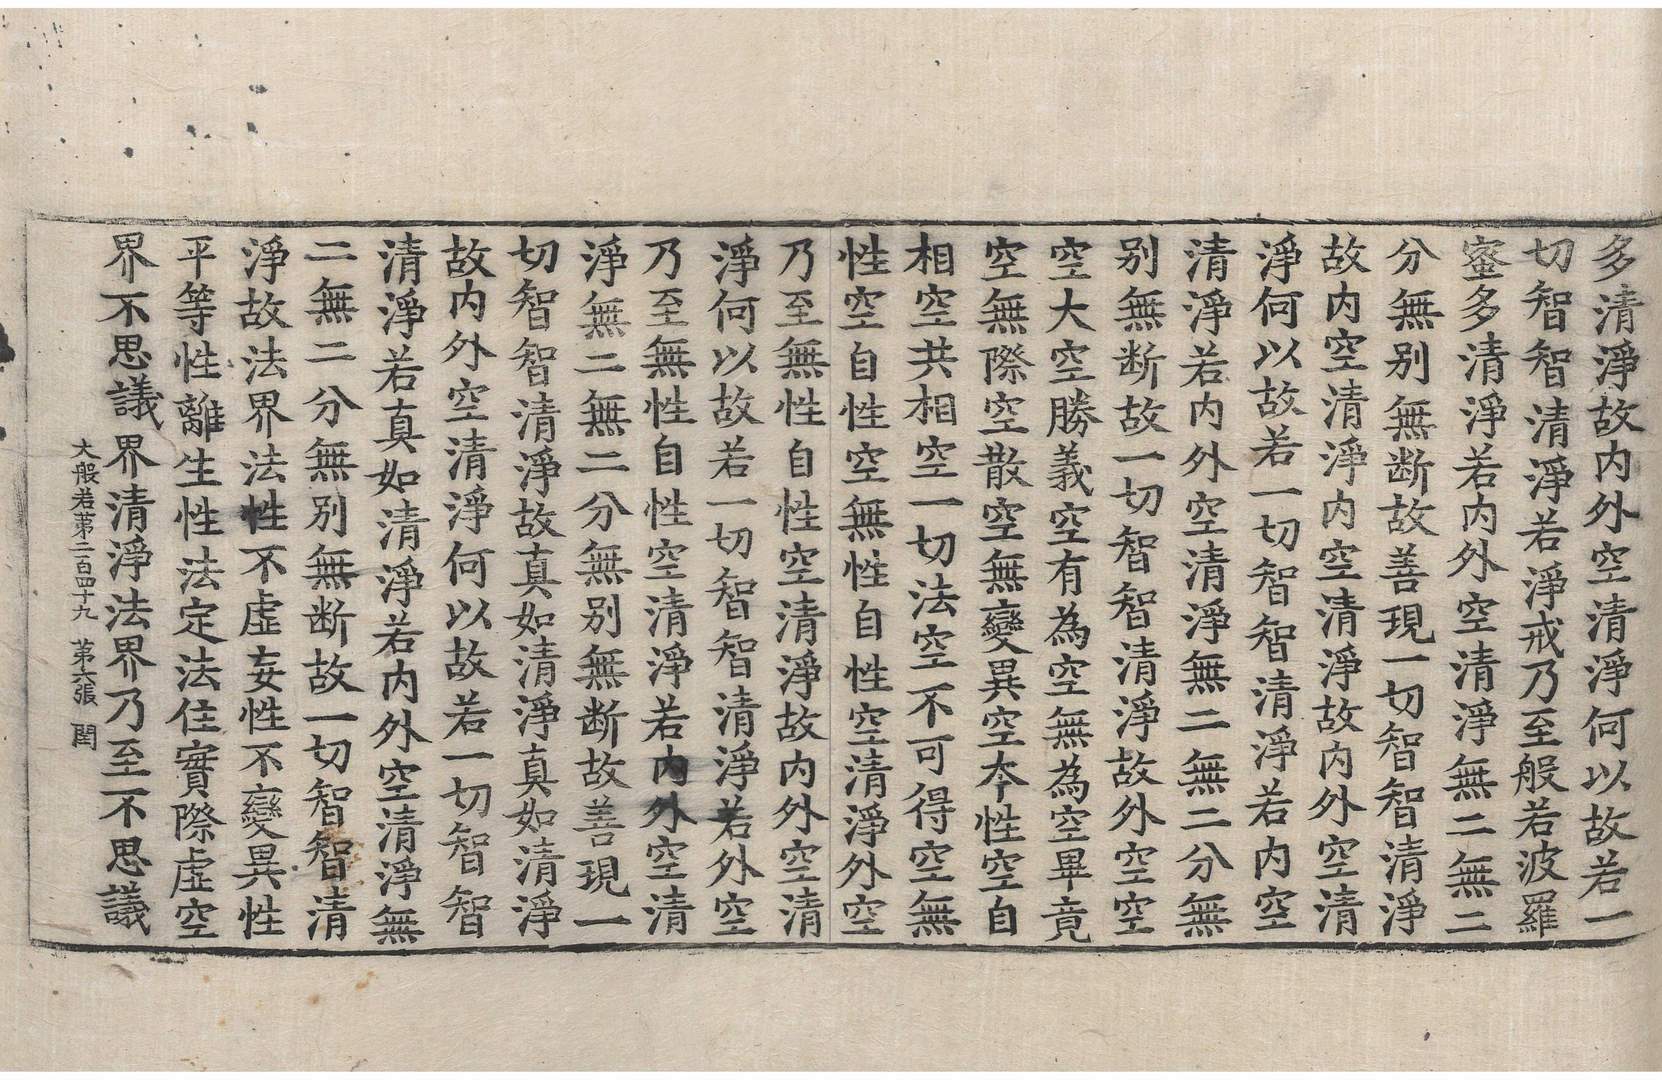 多清淨故内外空清淨何以故若一
切智智清淨若淨戒乃至般若波羅
蜜多清淨若内外空清淨無二無二
分無别無断故善現一切智智清淨
故内空清淨内空清淨故内外空清
淨何以故若一切智智清淨若内空
清淨若内外空清淨無二無二分無
别無断故一切智智清淨故外空空
空大空勝義空有為空無為空畢竟
空無際空散空無變異空夲性空自
相空共相空一切法空不可得空無
性空自性空無性自性空清淨外空
乃至無性自性空清淨故内外空清
淨何以故若一切智智清淨若外空
乃至無性自性空清淨若内外空清
淨無二無二分無别無断故善現一
切智智清淨故真如清淨真如清淨
故内外空清淨何以故若一切智智
清淨若真如清淨若内外空清淨無
二無二分無别無断故一切智智清
淨故法界法性不虛妄性不變異性
平等性離生性法定法住實際虛空
界不思議界清淨法界乃至不思議
大般若第二百四十九 第六張 閏